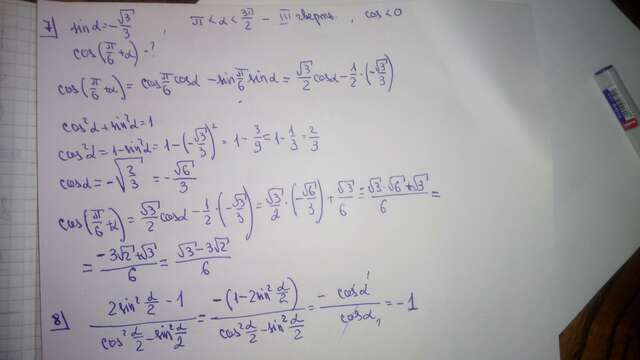 7] sinα = -√3/3, π < α < 3π/2 - III четверть, cos < 0
cos(π/6 + α) - ?
cos(π/6 + α) = cos π/6 cosα - sin π/6 sinα = √3/2 cosα - 1/2 · (-√3/3)
cos²α + sin²α = 1
cos²α = 1 - sin²α = 1 - (-√3/3)² = 1 - 3/9 = 1 - 1/3 = 2/3
cosα = -√(2/3) = -√6/3
cos(π/6 + α) = √3/2 cosα - 1/2 · (-√3/3) = √3/2 · (-√6/3) + √3/6 = (-√3·√6 + √3)/6 =
= (-3√2 + √3)/6 = (√3 - 3√2)/6
8] (2sin² α/2 - 1)/(cos² α/2 - sin² α/2) = -(1 - 2sin² α/2)/(cos² α/2 - sin² α/2) = - cosα/cosα = -1